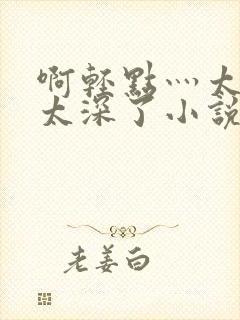 啊轻點灬太
太深了小說
老姜白